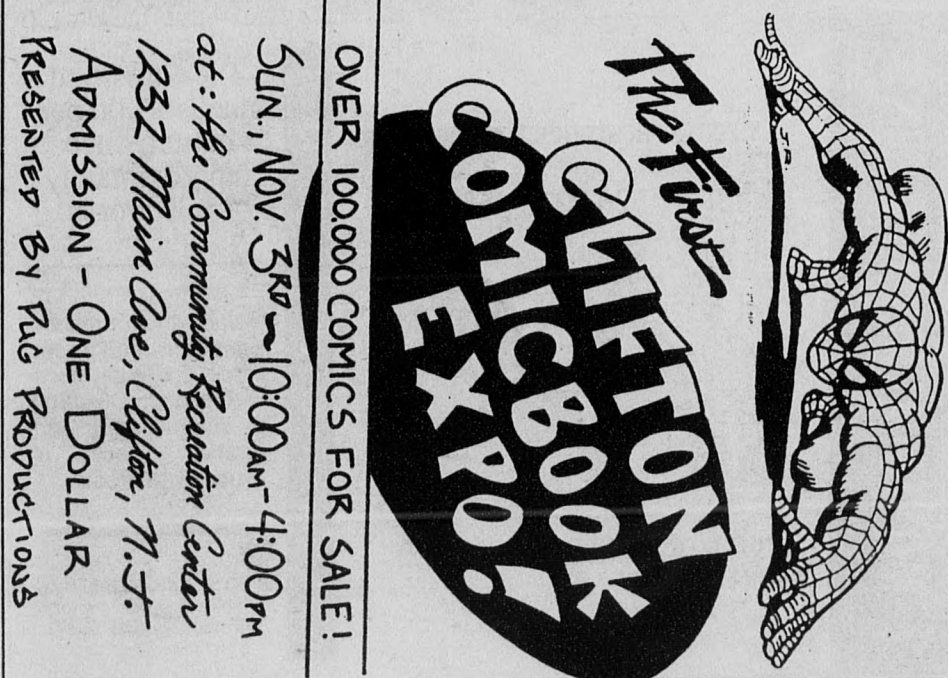 The First
CLIFTON
COMICBOOK
EXPO!
OVER 100.000 COMICS FOR SALE!
SUN., NOV. 3RD ~ 10:00AM - 4:00PM
at: the Community Recreation Center
1232 Main Ave, Clifton, N.J.
ADMISSION - ONE DOLLAR
PRESENTED BY PUG PRODUCTIONS
J.R.